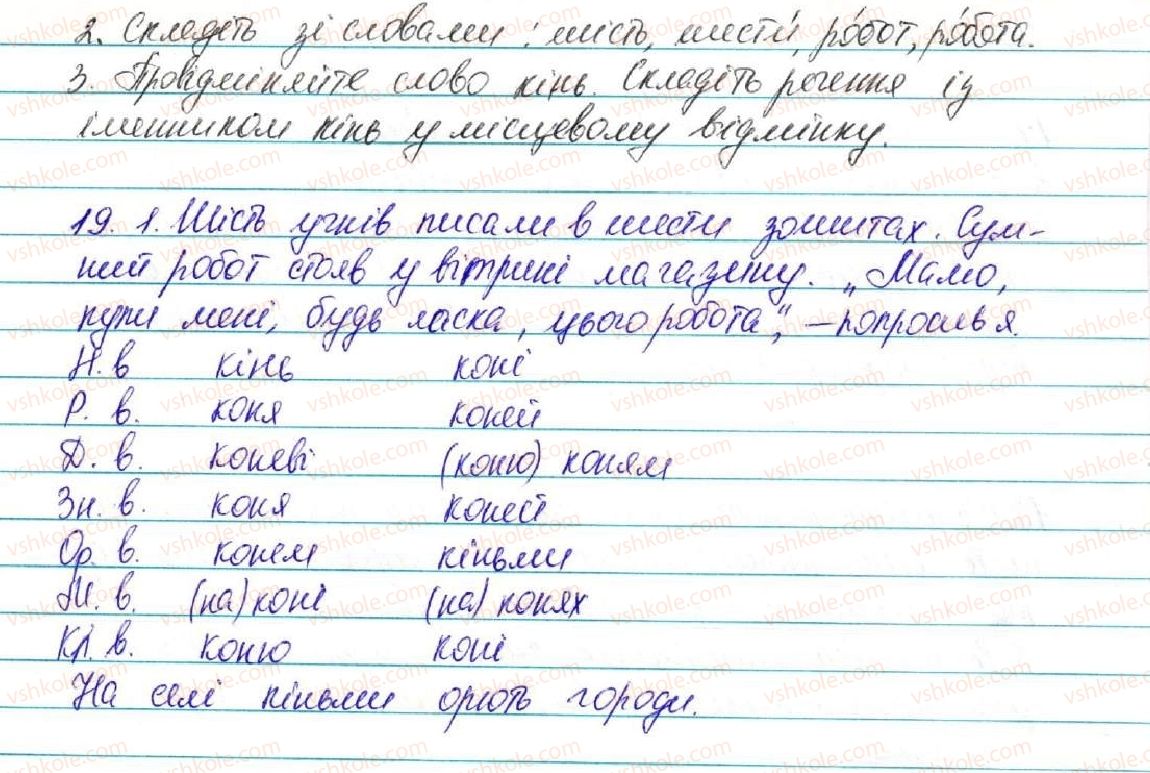 2. Складіть зі словами: шість, шести́, ро́бот, ро́бота.
3. Провідміняйте слово кінь. Складіть речення із
іменником кінь у місцевому відмінку.
19. 1. Шість учнів писали в шести зошитах. Сум-
ний робот стояв у вітрині магазину. „Мамо,
купи мені, будь ласка, цього робота", – попросив я.
Н. в кінь коні
Р. в. коня коней
Д. в. коневі (коню) коням
Зн. в. коня коней
Ор. в. конем кіньми
М. в. (на) коні (на) конях
Кл. в. коню коні
На селі кіньми орють городи.